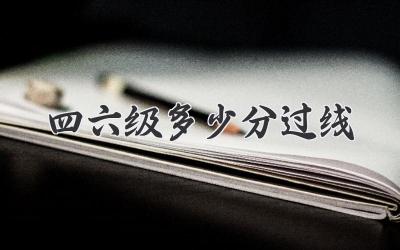 四六级多少分过线